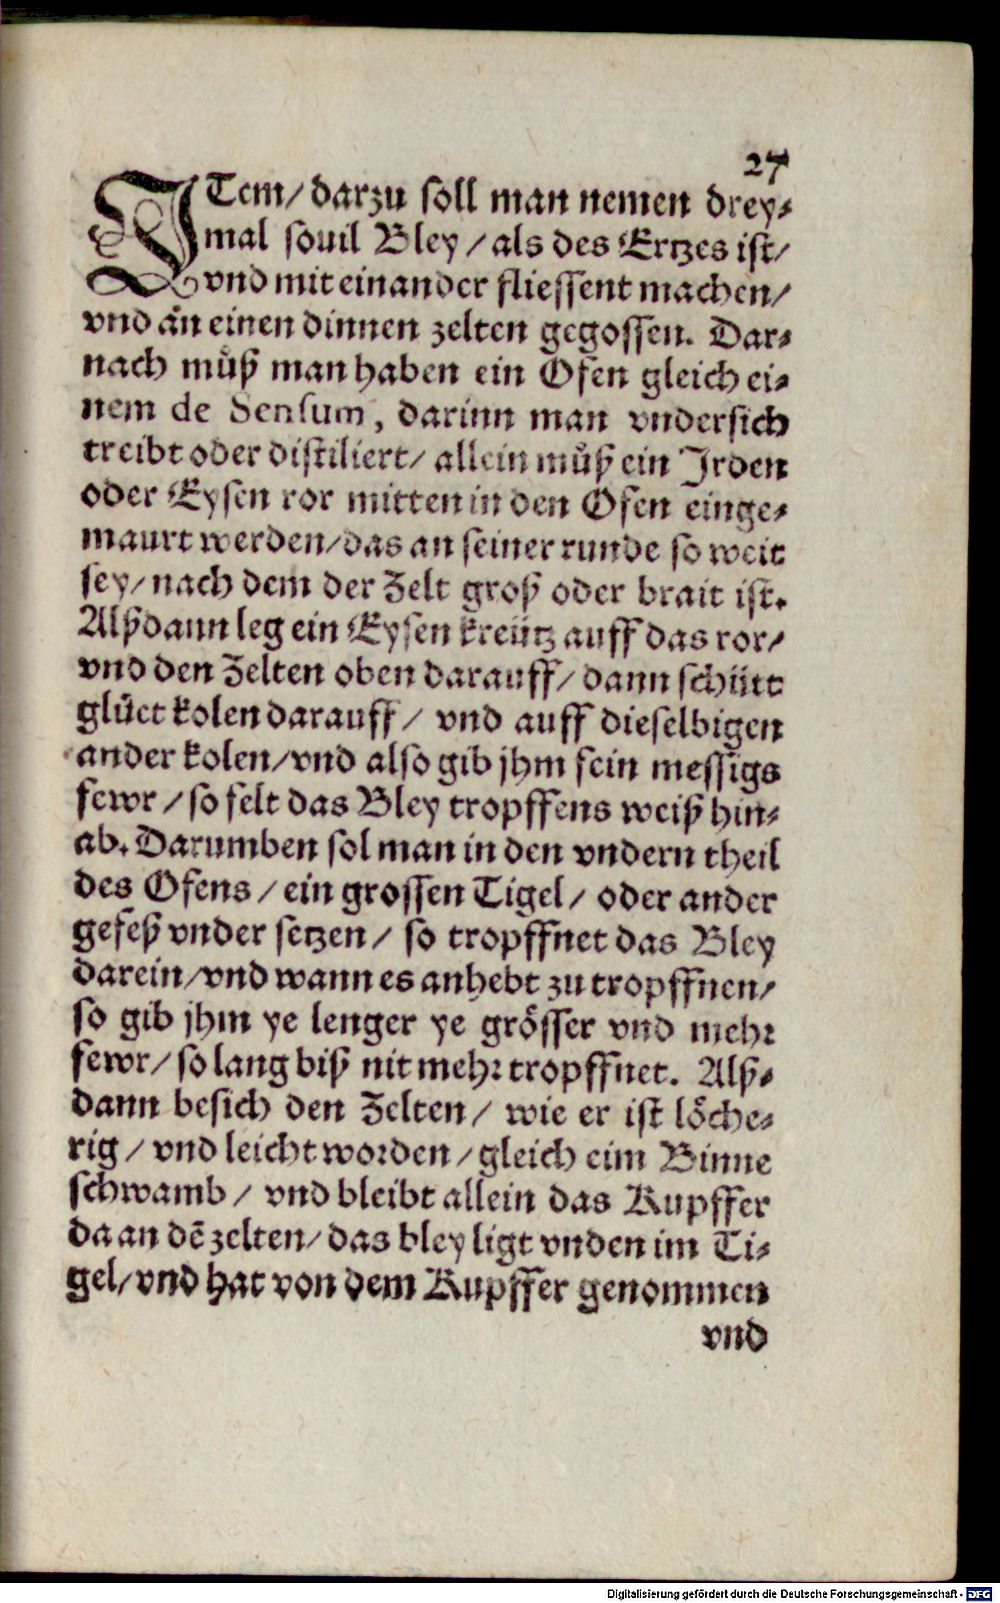 27
ITem/ darzu soll man nemen drey⸗
mal souil Bley / als des Ertzes ist/
vnd mit einander fliessent machen/
vnd an einen dinnen zelten gegossen. Dar⸗
nach muͦß man haben ein Ofen gleich ei⸗
nem de Sensum, darinn man vndersich
treibt oder distiliert/ allein muͦß ein Jrden
oder Eysen ror mitten in den Ofen einge⸗
maurt werden/ das an seiner runde so weit
sey/ nach dem der Zelt groß oder brait ist.
Alßdann leg ein Eysen kreütz auff das ror/
vnd den Zelten oben darauff/ dann schütt
glüet kolen darauff / vnd auff dieselbigen
ander kolen/ vnd also gib jhm fein messigs
fewr / so felt das Bley tropffens weiß hin⸗
ab. Darumben sol man in den vndern theil
des Ofens / ein grossen Tigel / oder ander
gefeß vnder setzen / so tropffnet das Bley
darein/ vnd wann es anhebt zu tropffnen/
so gib jhm ye lenger ye grösser vnd mehr
fewr/ so lang biß nit mehr tropffnet. Alß⸗
dann besich den Zelten / wie er ist löche⸗
rig / vnd leicht worden / gleich eim Binne
schwamb / vnd bleibt allein das Kupffer
da an dē zelten/ das bley ligt vnden im Ti⸗
gel/ vnd hat von dem Kupffer genommen
vnd
Digitalisierung gefördert durch die Deutsche Forschungsgemeinschaft - DFG